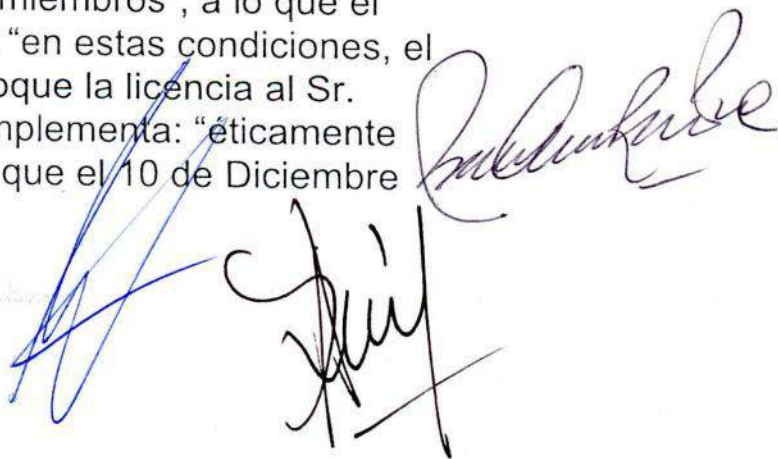 miembros", a lo que el
"en estas condiciones, el
oque la licencia al Sr.
mplementa: "éticamente
que el 10 de Diciembre